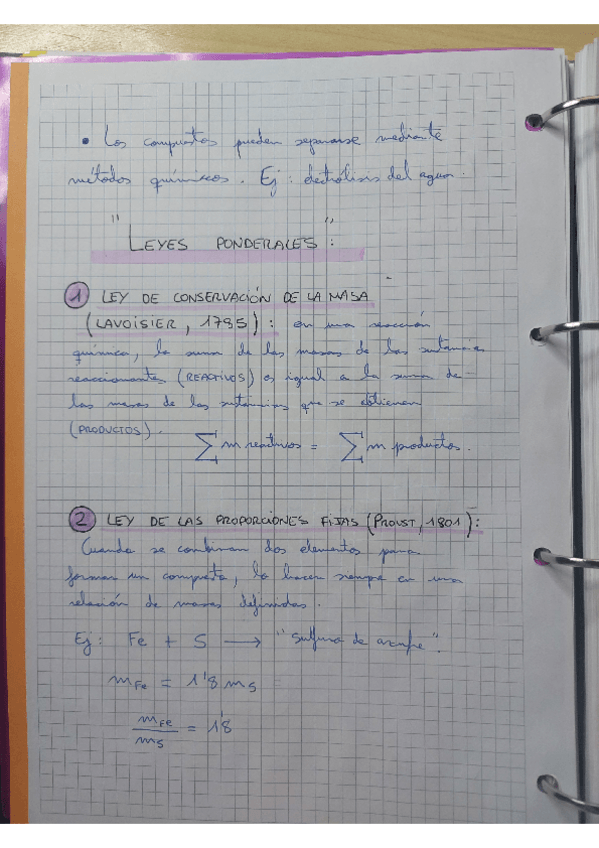 • Los compuestos pueden separarse mediante
métodos químicos. Ej: electrólisis del agua.
"LEYES PONDERALES":
1 LEY DE CONSERVACIÓN DE LA MASA
(LAVOISIER, 1795): en una reacción
química, la suma de las masas de las sustancias
reaccionantes (REACTIVOS) es igual a la suma de
las masas de las sustancias que se obtienen
(PRODUCTOS).
∑ m reactivos = ∑ m productos.
2 LEY DE LAS PROPORCIONES FIJAS (PROUST, 1801):
Cuando se combinan dos elementos para
formar un compuesto, lo hacen siempre en una
relación de masas definidas.
Ej: Fe + S → "Sulfuro de azufre".
mFe = 1'8 mS
mFe/mS = 1'8